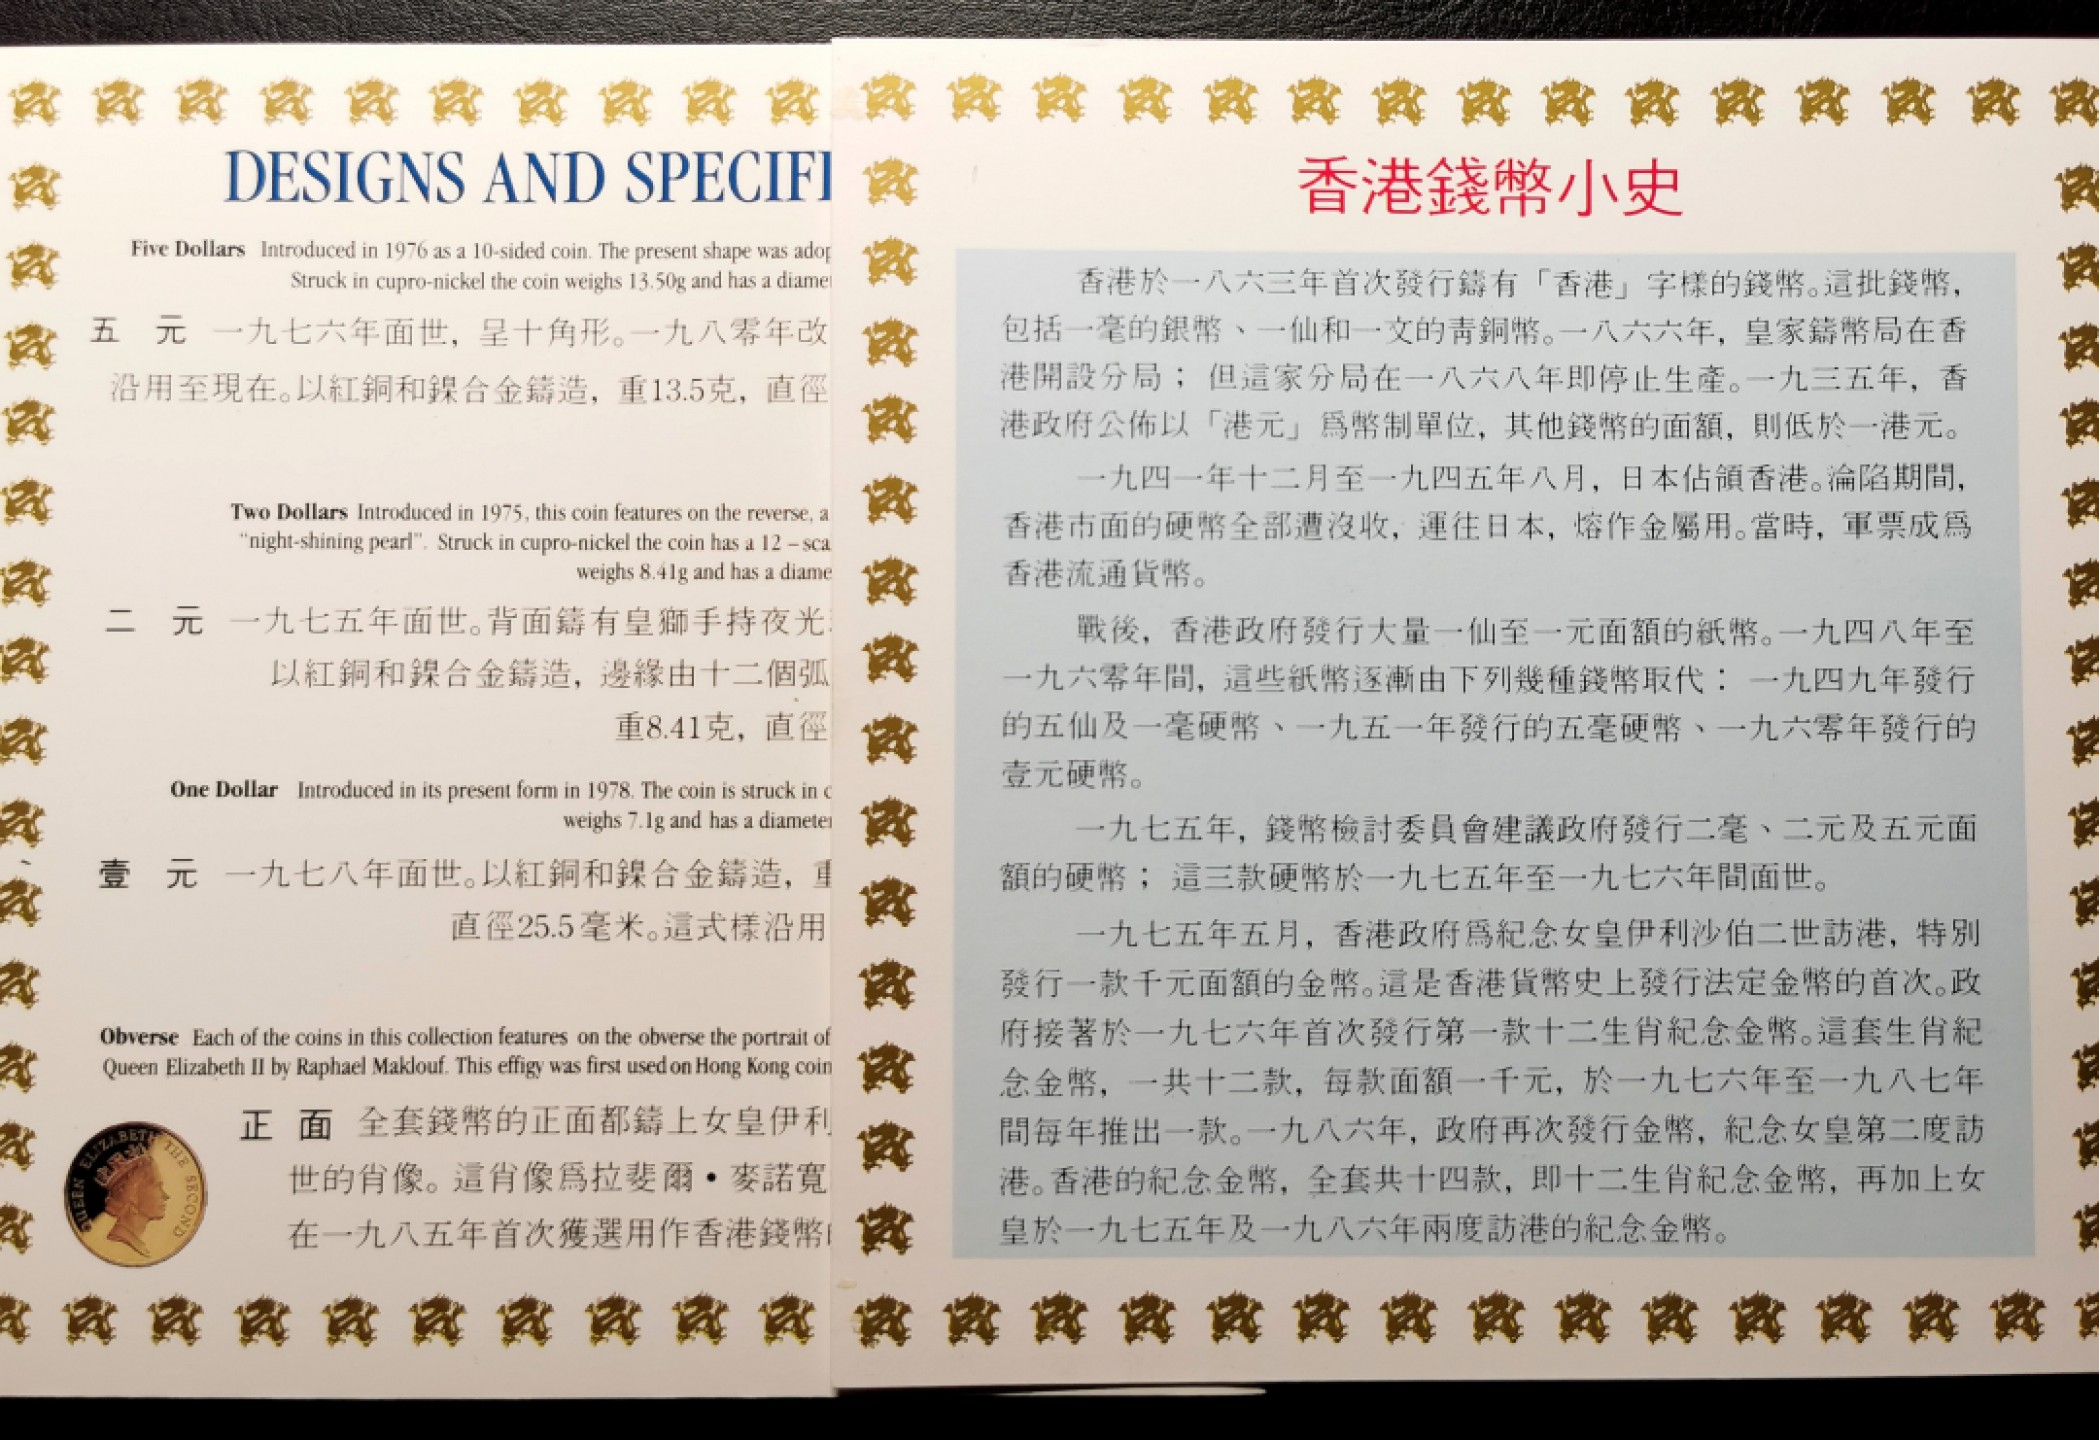 DESIGNS AND SPECIFI
Five Dollars Introduced in 1976 as a 10-sided coin. The present shape was adop
Struck in cupro-nickel the coin weighs 13.50g and has a diame
五 元 一九七六年面世，呈十角形。一九八零年改
沿用至現在。以紅銅和鎳合金鑄造，重13.5克，直徑
Two Dollars Introduced in 1975, this coin features on the reverse, a
“night-shining pearl”. Struck in cupro-nickel the coin has a 12 – sca
weighs 8.41g and has a diame
二 元 一九七五年面世。背面鑄有皇獅手持夜光
以紅銅和鎳合金鑄造，邊緣由十二個弧
重8.41克，直徑
One Dollar Introduced in its present form in 1978. The coin is struck in c
weighs 7.1g and has a diameter
壹 元 一九七八年面世。以紅銅和鎳合金鑄造，重
直徑25.5毫米。這式樣沿用
Obverse Each of the coins in this collection features on the obverse the portrait of
Queen Elizabeth II by Raphael Maklouf. This effigy was first used on Hong Kong coin
正 面 全套錢幣的正面都鑄上女皇伊利
世的肖像。這肖像爲拉斐爾•麥諾寬
在一九八五年首次獲選用作香港錢幣
QUEEN ELIZABETH THE SECOND
香港錢幣小史
香港於一八六三年首次發行鑄有「香港」字樣的錢幣。這批錢幣，
包括一毫的銀幣、一仙和一文的靑銅幣。一八六六年，皇家鑄幣局在香
港開設分局；但這家分局在一八六八年即停止生產。一九三五年，香
港政府公佈以「港元」爲幣制單位，其他錢幣的面額，則低於一港元。
一九四一年十二月至一九四五年八月，日本佔領香港。淪陷期間，
香港市面的硬幣全部遭沒收，運往日本，熔作金屬用。當時，軍票成爲
香港流通貨幣。
戰後，香港政府發行大量一仙至一元面額的紙幣。一九四八年至
一九六零年間，這些紙幣逐漸由下列幾種錢幣取代：一九四九年發行
的五仙及一毫硬幣、一九五一年發行的五毫硬幣、一九六零年發行的
壹元硬幣。
一九七五年，錢幣檢討委員會建議政府發行二毫、二元及五元面
額的硬幣；這三款硬幣於一九七五年至一九七六年間面世。
一九七五年五月，香港政府爲紀念女皇伊利沙伯二世訪港，特別
發行一款千元面額的金幣。這是香港貨幣史上發行法定金幣的首次。政
府接著於一九七六年首次發行第一款十二生肖紀念金幣。這套生肖紀
念金幣，一共十二款，每款面額一千元，於一九七六年至一九八七年
間每年推出一款。一九八六年，政府再次發行金幣，紀念女皇第二度訪
港。香港的紀念金幣，全套共十四款，即十二生肖紀念金幣，再加上女
皇於一九七五年及一九八六年兩度訪港的紀念金幣。